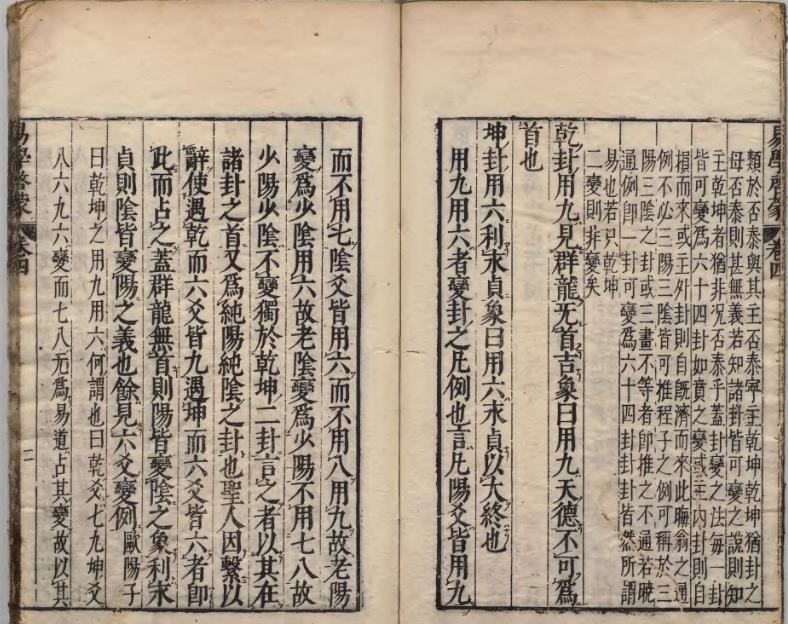 易學啓蒙 卷四
類於否泰與其主否泰寧主乾坤乾坤猶卦之
母否泰則甚無義若知諸卦皆可變之說則知
主乾坤者猶非况否泰乎蓋卦變之法每一卦
皆可變爲六十四卦如賁之變或主内卦則自
損而來或主外卦則自既濟而來此晦翁之通
例不必三陽三陰皆可推程子之例可稱於三
陽三陰之卦或三畫不等者卽推之不通若曉
通例卽一卦可變爲六十四卦卦卦皆然所謂
易也若只乾坤
二變則非變矣
乾卦用九見群龍无首吉象曰用九天德不可爲
首也
坤卦用六利永貞象曰用六永貞以大終也
用九用六者變卦之凡例也言凡陽爻皆用九
而不用七陰爻皆用六而不用八用九故老陽
變爲少陰用六故老陰變爲少陽不用七八故
少陽少陰不變獨於乾坤二卦言之者以其在
諸卦之首又爲純陽純陰之卦也聖人因繫以
辭使遇乾而六爻皆九遇坤而六爻皆六者卽
此而占之蓋群龍無首則陽皆變陰之象利永
貞則陰皆變陽之義也餘見六爻變例歐陽子
曰乾坤之用九用六何謂也曰乾爻七九坤爻
八六九六變而七八无爲易道占其變故以其
易學啓蒙 卷四 二